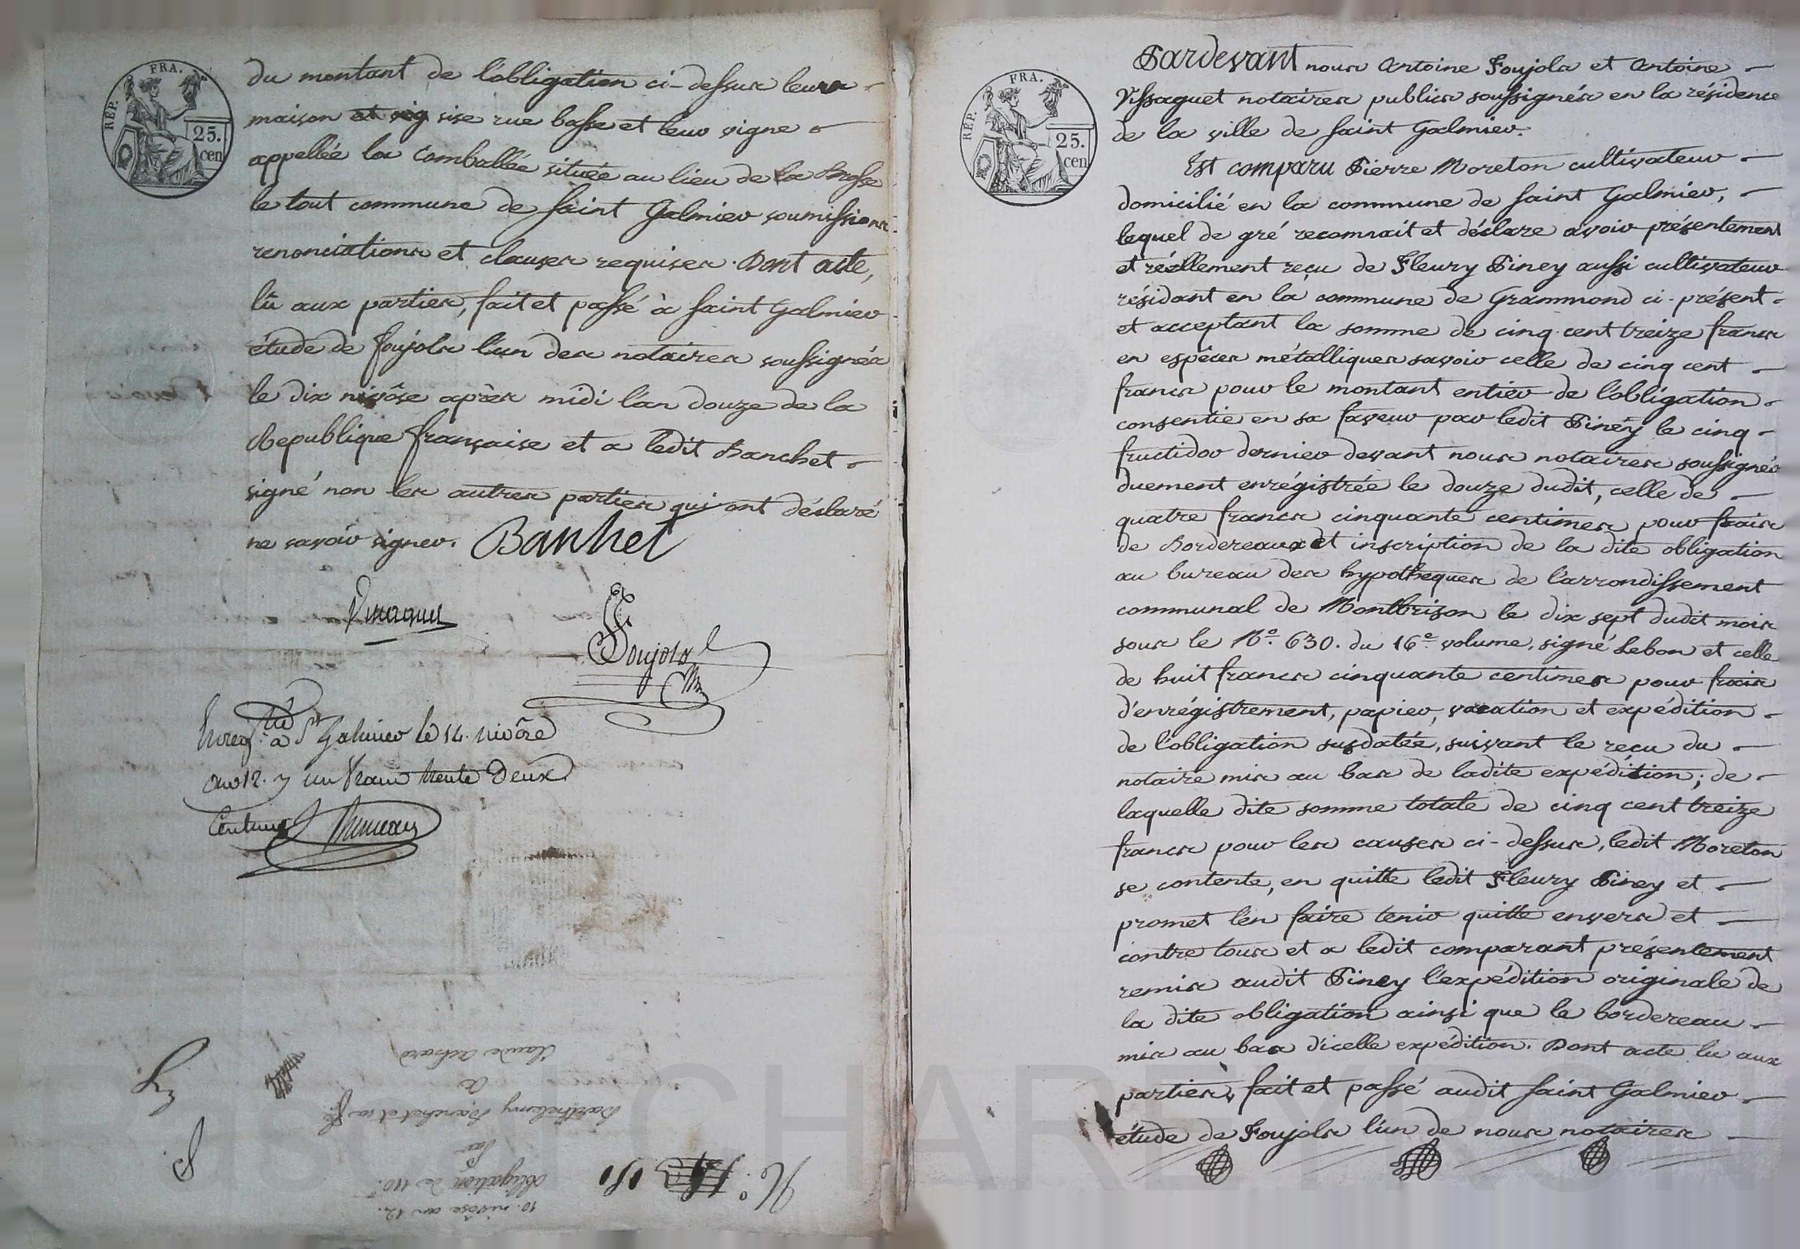 RÉP. FRA.
25.
cen
du montant de l'obligation ci-dessus leurs
maison et vig sise rue basse et leur vigne
appellée la Comballée située au lieu de la
le tout commune de Saint Galmier soumissions
renonciations et clauses requises. Dont acte,
lû aux parties, fait et passé à Saint Galmier
étude de Foujols l'un des notaires soussignés
le dix nivôse après midi l'an douze de la
Republique française et a ledit Banchet
signé non les autres parties qui ont déclaré
ne savoir signer. Banhet
Foujols
Enreg.tré à St Galmier le 14. nivôse
an 12. un franc trente Deux
Centimes
Claude
a
Barthelemy Banchet et sa fe
par
obligation de 110
10. nivôse an 12.
N.o 181
RÉP. FRA.
25.
cen
Pardevant nous Antoine Foujols et Antoine
Vissaguet notaires publics soussignés en la résidence
de la ville de Saint Galmier.
Est comparu Pierre Moreton cultivateur
domicilié en la commune de Saint Galmier,
lequel de gré reconnait et déclare avoir présentement
et réellement reçu de Fleury Piney aussi cultivateur
résidant en la commune de Grammond ci-présent
et acceptant la somme de cinq cent treize francs
en espèces métalliques savoir celle de cinq cent
francs pour le montant entier de l'obligation
consentie en sa faveur par ledit Piney le cinq
fructidor dernier devant nous notaires soussignés
duement enrégistrée le douze dudit, celle de
quatre francs cinquante centimes pour frais
de Bordereaux et inscription de la dite obligation
au bureau des hypotheques de l'arrondissement
communal de Montbrison le dix sept dudit mois
sous le No. 630. du 16e volume, signé Lebon et celle
de huit francs cinquante centimes pour frais
d'enrégistrement, papier, vacation et expédition
de l'obligation susdatée, suivant le reçu du
notaire mis au bas de ladite expédition; de
laquelle dite somme totale de cinq cent treize
francs pour les causes ci-dessus, ledit Moreton
se contente, en quitte ledit Fleury Piney et
promet l'en faire tenir quitte envers et
contre tous et a ledit comparant présentement
remis audit Piney l'expédition originale de
la dite obligation ainsi que le bordereau
mis au bas d'icelle expédition. Dont acte lu aux
parties, fait et passé audit Saint Galmier
étude de Foujols l'un de nous notaires
Pascal CHAREYRON